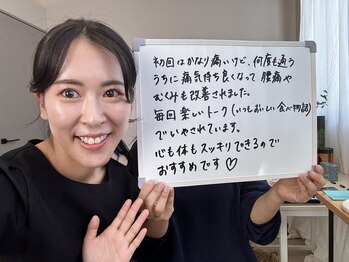 初回はかなり痛いけど、何度も通う
うちに痛気持ち良くなって 腰痛や
むくみも改善されました。
毎回楽しいトーク(いつもおいしい食べ物話)
でいやされています。
心も体もスッキリできるので
おすすめです♡